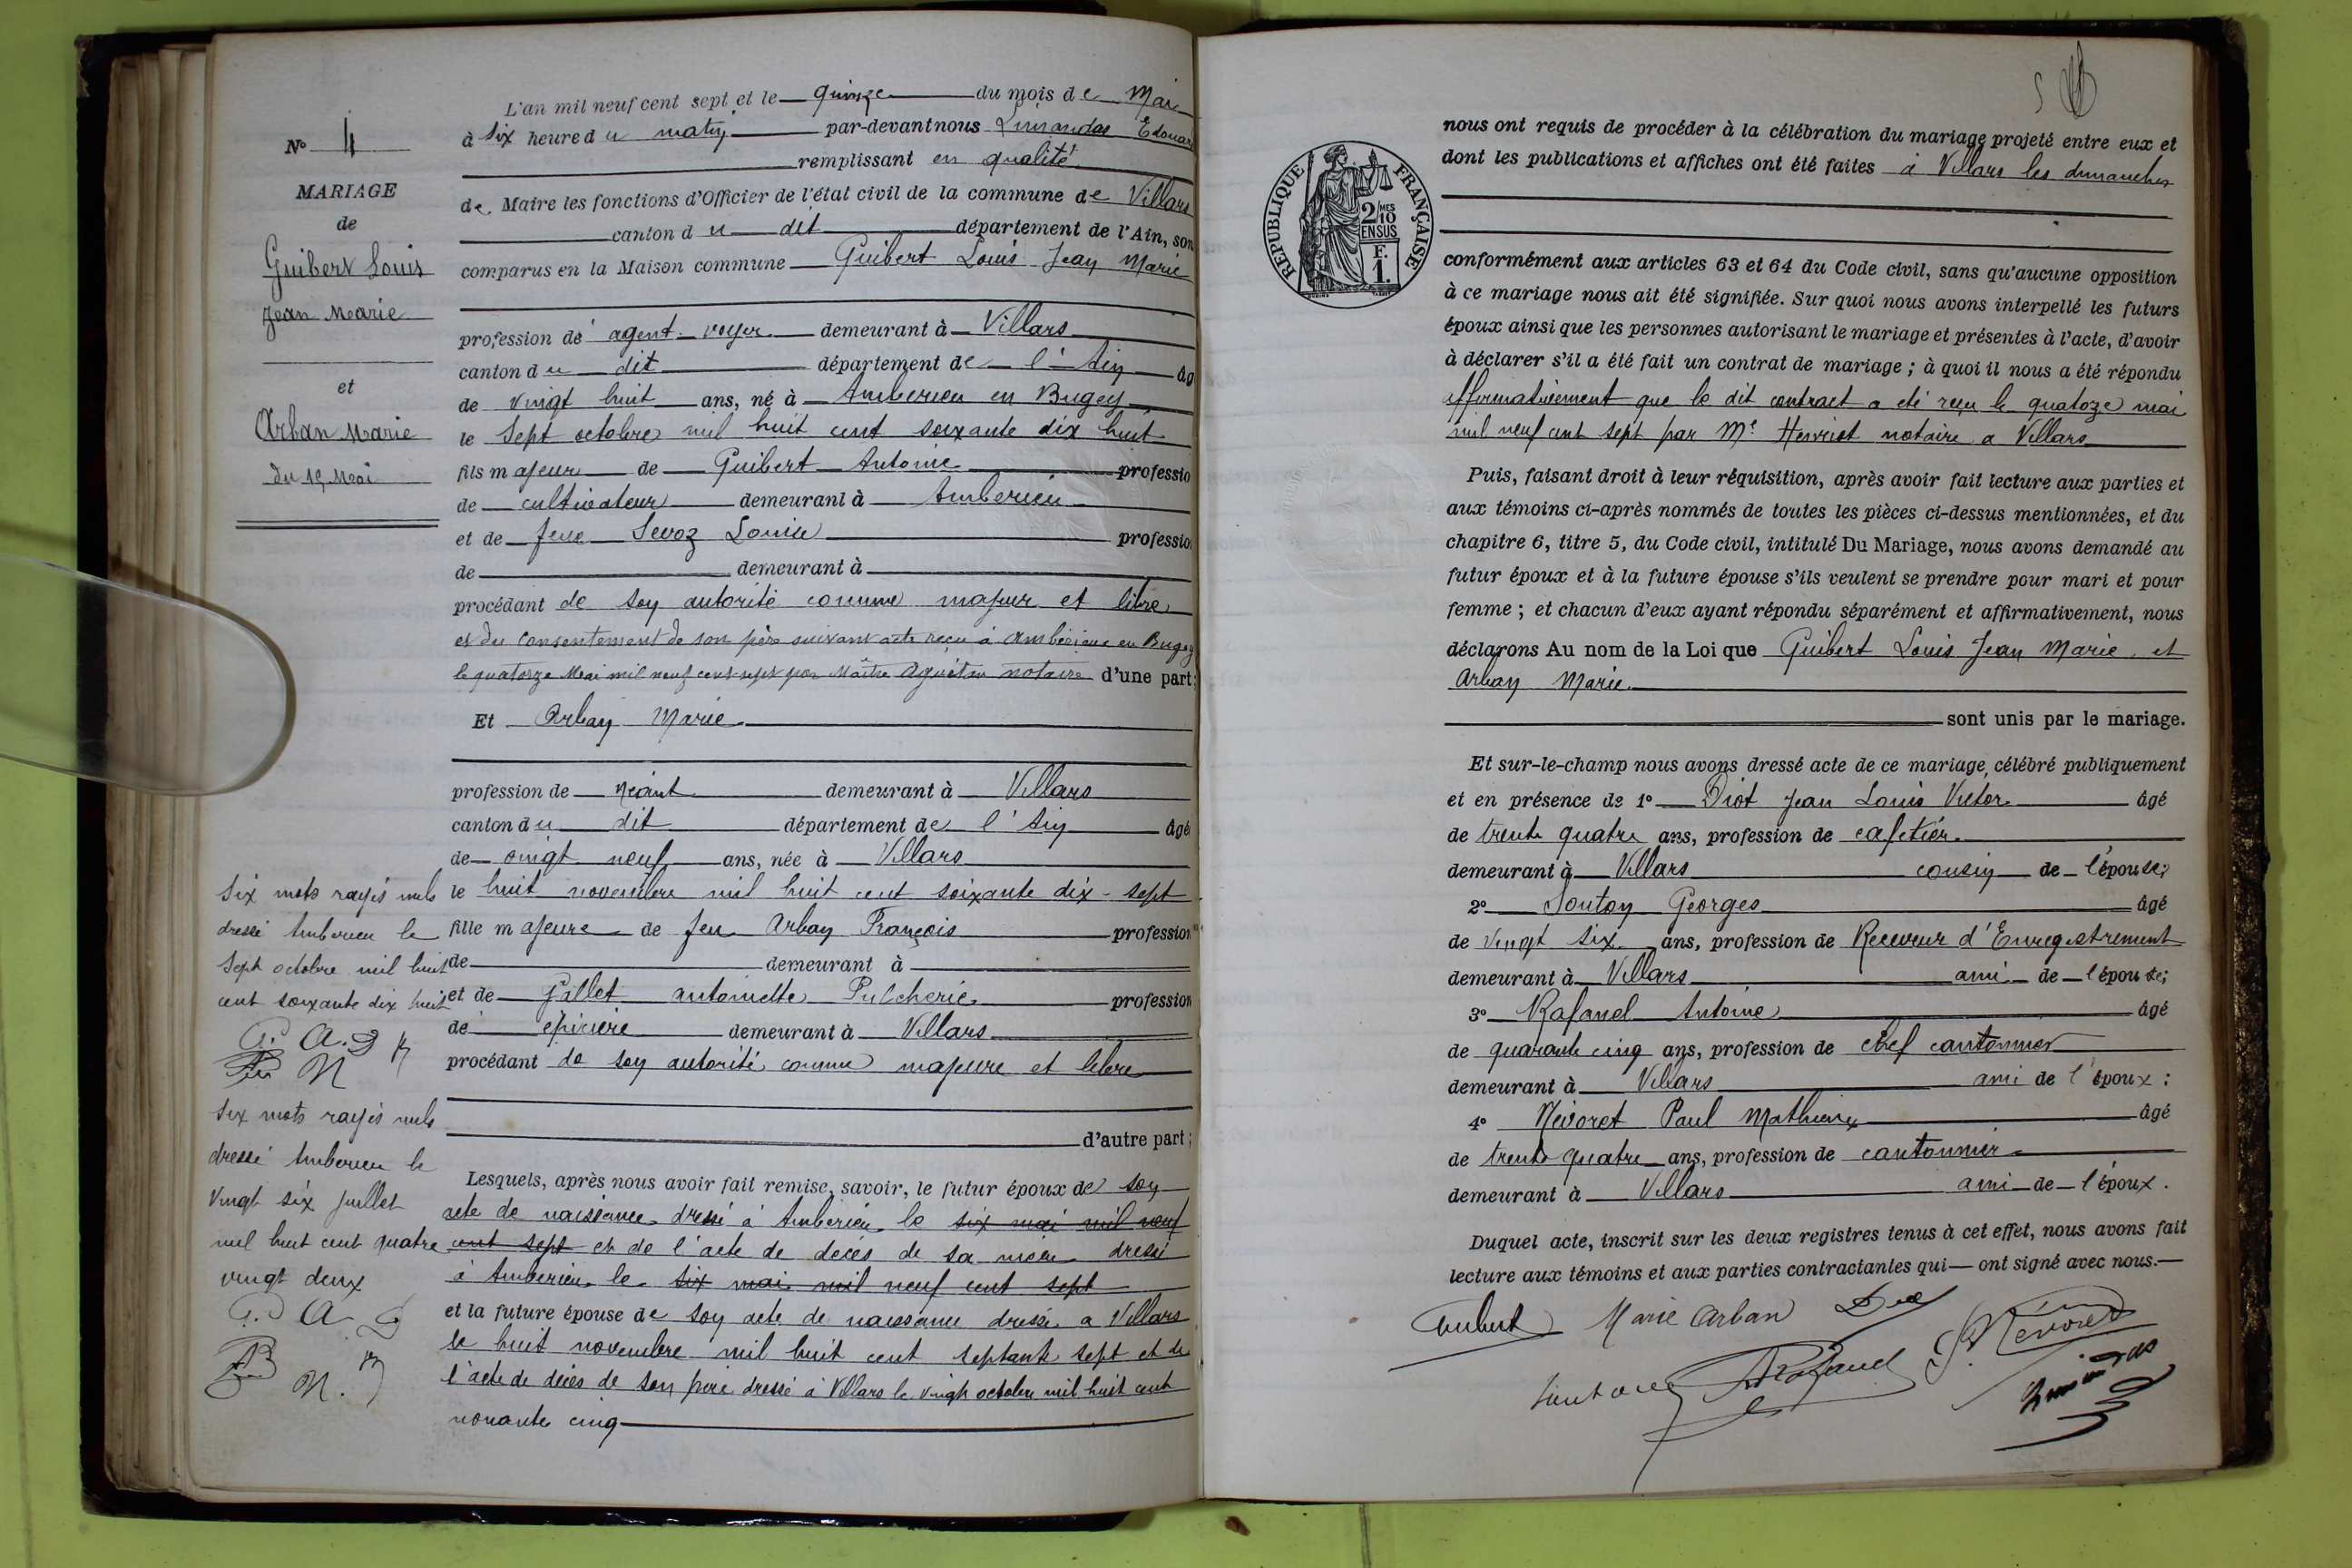 N° 4
MARIAGE
de
Guibert Louis
Jean Marie
et
Arban Marie
du 15 Mai
L'an mil neuf cent sept et le quinze du mois de Mai
à six heure du matin par-devant nous Limandas Edouard
remplissant en qualité
de Maire les fonctions d'Officier de l'état civil de la commune de Villars
canton du dit département de l'Ain, son
comparus en la Maison commune Guibert Louis Jean Marie
profession de agent-voyer demeurant à Villars
canton du dit département de l'Ain âg
de vingt huit ans, né à Amberieu en Bugey
le sept octobre mil huit cent soixante dix huit
fils majeur de Guibert Antoine professio
de cultivateur demeurant à Amberieu
et de feue Sevoz Louise professio
de demeurant à
procédant de son autorité comme majeur et libre
et du consentement de son père suivant acte reçu à Ambérieu en Bugey
le quatorze Mai mil neuf cent sept par Maître notaire d'une part;
Et Arban Marie
profession de néant demeurant à Villars
canton du dit département de l'Ain âgé
de vingt neuf ans, née à Villars
le huit novembre mil huit cent soixante dix-sept
fille majeure de feu Arban François profession
de demeurant à
et de Gallet antoinette Pulcherie profession
de épicière demeurant à Villars
procédant de son autorité comme majeure et libre
d'autre part;
Lesquels, après nous avoir fait remise, savoir, le futur époux de son
acte de naissance dressé à Amberieu le six mai mil neuf
cent sept et de l'acte de décès de sa mère dressé
à Amberieu le six mai mil neuf cent sept
et la future épouse de son acte de naissance dressé a Villars
le huit novembre mil huit cent septante sept et de
l'acte de décès de son père dressé à Villars le vingt octobre mil huit cent
nonante cinq
Six mots rayés nuls
dressé Amberieu le
sept octobre mil huit
cent soixante dix huit
G. A. D
N
Six mots rayés nuls
dressé Amberieu le
vingt six juillet
mil huit cent quatre
vingt deux
G. A. D
N.
5
RÉPUBLIQUE FRANÇAISE
2/10MES
EN SUS
F.
1.
nous ont requis de procéder à la célébration du mariage projeté entre eux et
dont les publications et affiches ont été faites à Villars les dimanches
conformément aux articles 63 et 64 du Code civil, sans qu'aucune opposition
à ce mariage nous ait été signifiée. Sur quoi nous avons interpellé les futurs
époux ainsi que les personnes autorisant le mariage et présentes à l'acte, d'avoir
à déclarer s'il a été fait un contrat de mariage; à quoi il nous a été répondu
affirmativement que le dit contract a été reçu le quatoze mai
mil neuf cent sept par Me Henriet notaire a Villars
Puis, faisant droit à leur réquisition, après avoir fait lecture aux parties et
aux témoins ci-après nommés de toutes les pièces ci-dessus mentionnées, et du
chapitre 6, titre 5, du Code civil, intitulé Du Mariage, nous avons demandé au
futur époux et à la future épouse s'ils veulent se prendre pour mari et pour
femme; et chacun d'eux ayant répondu séparément et affirmativement, nous
déclarons Au nom de la Loi que Guibert Louis Jean Marie et
Arban Marie
sont unis par le mariage.
Et sur-le-champ nous avons dressé acte de ce mariage, célébré publiquement
et en présence de 1° Diot Jean Louis Victor âgé
de trente quatre ans, profession de cafetier
demeurant à Villars cousin de l'épouse;
2° Soutoy Georges âgé
de vingt six ans, profession de Receveur d'Enregistrement
demeurant à Villars ami de l'épouse;
3° Rafanel Antoine âgé
de quarante cinq ans, profession de chef cantonnier
demeurant à Villars ami de l'époux;
4° Névoret Paul Mathieu âgé
de trente quatre ans, profession de cantonnier
demeurant à Villars ami de l'époux.
Duquel acte, inscrit sur les deux registres tenus à cet effet, nous avons fait
lecture aux témoins et aux parties contractantes qui ont signé avec nous.
Guibert Marie Arban Névoret
Rafanel Limandas